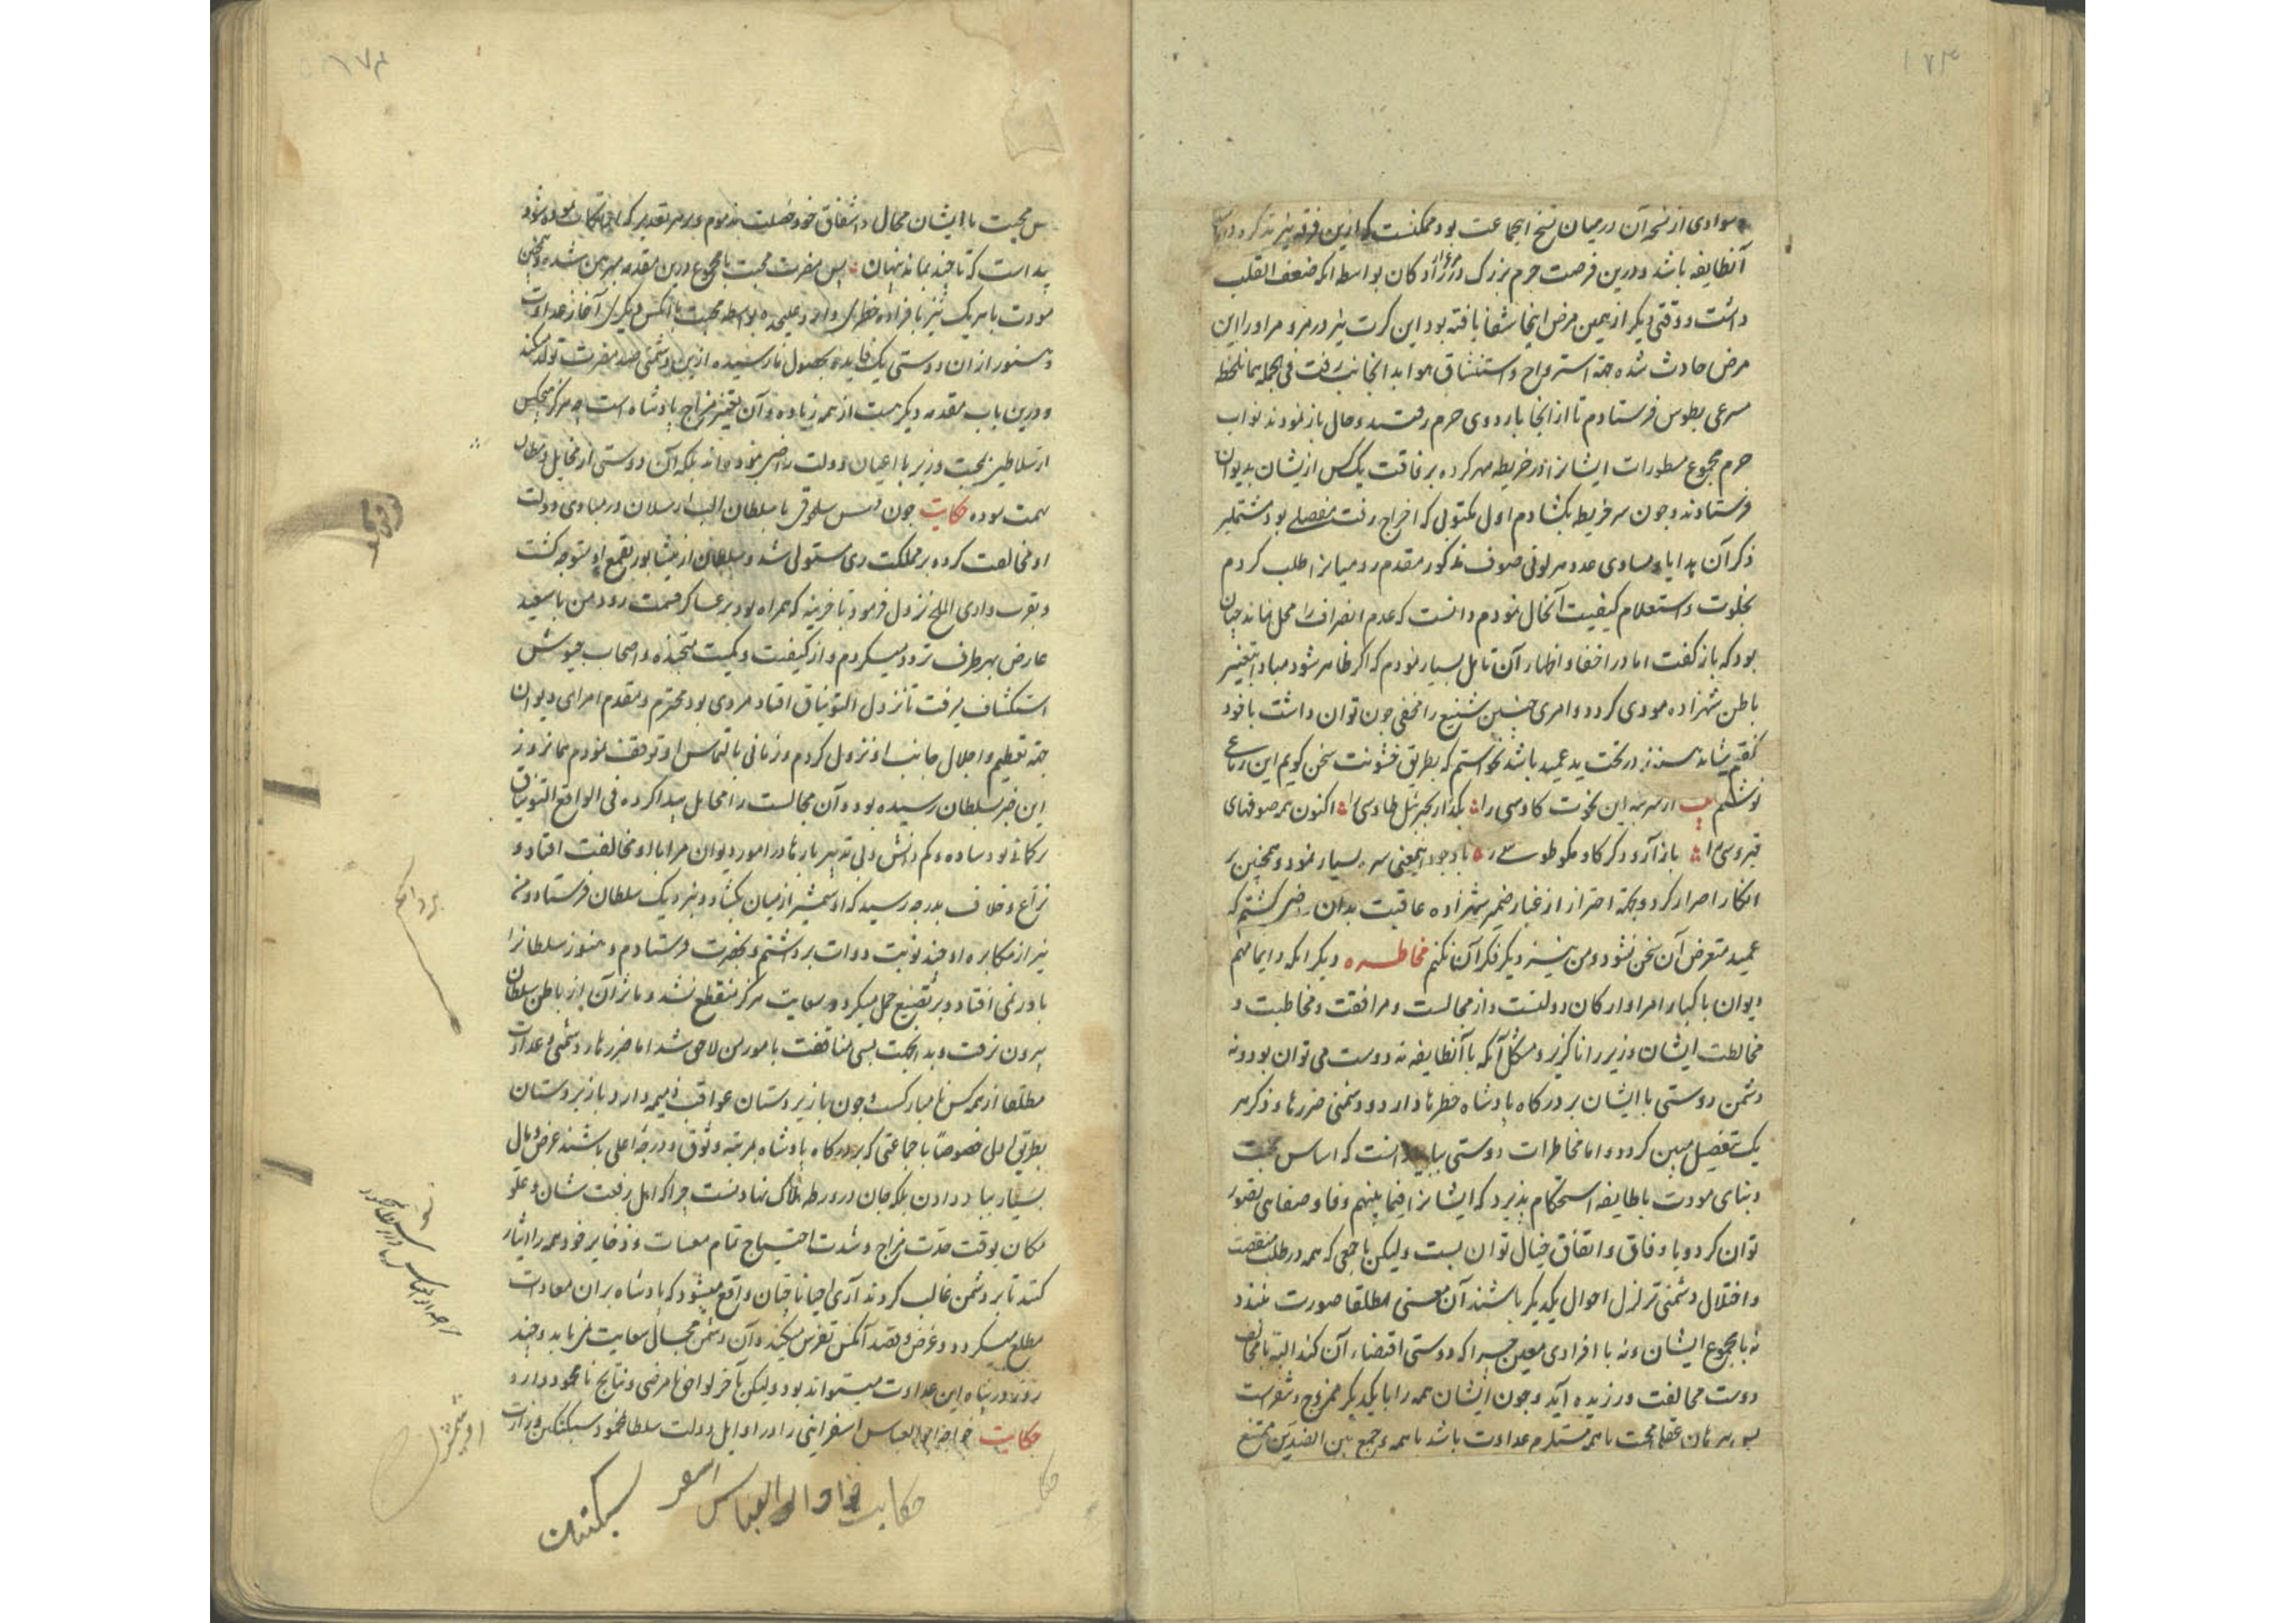 ۱۷۳
سوادی از نسخه آن در میان نسخ آنجماعت بود ممکنست که ازین فرقه نیز تذکره
آنطایفه باشد و درین فرصت حرم بزرگ کان بواسطه آنکه ضعف القلب
داشت و وقتی دیگر از همین مرض اینجا شفا یافته بود این کرت نیز در مرو مر او را این
مرض حادث شده جهة استرواح و استنشاق هوا بدانجانب رفت فی الجمله همانلحظه
مسرعی بطوس فرستادم تا از آنجا باردوی حرم رفتند و حال باز نمودند نواب
حرم مجموع مسطورات ایشانرا در خریطه مهر کرده برفاقت یک کس ازیشان بدیوان
فرستادند و چون سر خریطه بکشادم اول مکتوبی که اخراج رفت مفصلی بود مشتمل بر
ذکر آن هدایا و مساوی عدد هر لونی صوف مذکور مقدم رومیانرا طلب کردم
بخلوت و استعلام کیفیت آنحال نمودم دانست که عدم انصراف را محل نماند چنان
بود که باز گفت اما در اخفا و اظهار آن تامل بسیار نمودم که اگر ظاهر شود مبادا بتغییر
باطن شهزاده مودی گردد و امری چنین شنیع را مخفی چون توان داشت با خود
گفتم شاید باشد نخواستم که بطریق خشونت سخن گویم این رباعی
نوشتم از سر بنه این نخوت کاوسی را بگذار بجبرئیل طاوسی را اکنون همه صوفهای
قبروسی را باز آر و دگر گاو مگو طوسی را با وجود اینمعنی بسیار نمود و همچنین بر
انکار اصرار کرد و بجهة احتراز از غبار ضمیر شهزاده عاقبت بدان راضی گشتم که
عمید متعرض آن سخن نشود و من نیز دیگر فکر آن نکنم مخاطره دیگر آنکه دایما مهم
دیوان با کبار امرا و ارکان دولتست و از مجالست و مرافقت و مخاطبت و
مخالطت ایشان وزیر را ناگزیر و مشکل آنکه با آنطایفه نه دوست می توان بود و نه
دشمن دوستی با ایشان بر درگاه پادشاه خطرها دارد و دشمنی ضررها و ذکر هر
یک بتفصیل مبین گردد و اما مخاطرات دوستی بباید دانست که اساس محبت
و بنای مودت با طایفه استحکام پذیرد که ایشانرا فیما بینهم وفا و صفایی تصور
توان کرد و یا وفاق و اتفاق خیال توان بست ولیکن با جمعی که همه در طلب منقصت
و اختلال و متمنی تزلزل احوال یکدیگر باشند آن معنی مطلقا صورت نبندد
نه با مجموع ایشان و نه با افرادی معین چرا که دوستی اقتضاء آن کند البته با مخالف
دوست مخالفت ورزیده آید و چون ایشان همه را با یکدیگر ممزوج و
عقلا محبت با همه مستلزم عداوت باشد با همه و جمع بین الضدین ممتنع
۱۷۴
پس محبت با ایشان محال و اشفاق خود خصلت مذموم و بر هر تقدیر که
پیداست که تا چند بماند پنهان پس مضرت محبت با مجموع درین مقدمه مبرهن شد و همچنین
مودت با هر یک نیز بانفراده خطری دارد علیحده بواسطه محبت با آنکس دیگری آغاز عداوت
و هنوز از آن دوستی یک فایده بحصول نارسیده ازین دشمنی صد مضرت تولد کند
و درین باب مقدمه دیگر هست از همه زیاده و آن تغییر مزاج پادشاه است چه هرگز هیچکس
از سلاطین بمحبت وزیر با اعیان دولت راضی نبوده اند بلکه آن دوستی از مخایل
تهمت بوده حکایت چون سلجوقی با سلطان الب ارسلان در مبادی دولت
او مخالفت کرده بر مملکت ری مستولی شد و سلطان از نیشابور بقمع او متوجه گشت
و بقرب وادی الملح نزول فرمود تا خزینه که همراه بود بر عساکر قسمت رود من با سعید
عارض بهر طرف تردد میکردم و از کیفیت و کمیت متجنده و اصحاب جیوش
استکشاف میرفت تا نزدل التونتاق افتاد مردی بود محترم و مقدم امرای دیوان
جهة تعظیم و اجلال جانب او نزول کردم و زمانی بالتماس او توقف نمودم همانروز
این خبر بسلطان رسیده بود و آن مجالست را محامل پیدا کرده فی الواقع التونتاق
ترکمانی بود ساده و کم دانش و بی تدبیر بارها در امور دیوان مرا با او مخالفت افتاد و
نزاع و خلاف بدرجه رسید که او شمشیر از میان بکشاد و بنزدیک سلطان فرستاد و من
نیز از مکابره او چند نوبت دوات برداشتم و بحضرت فرستادم و هنوز سلطانرا
باور نمی افتاد و بر تصنع حمل میکرد و سعایت هرگز منقطع نشد و ماثر آن از باطن سلطان
بیرون نرفت و بدانجهت بسی مناقضت بامور من لاحق شد اما ضررها و دشمنی و عداوت
مطلقا از همه کس نا مبارکست و چون با زیردستان عواقب ذمیمه دارد با زبردستان
بطریق اولی خصوصاً با جماعتی که بر درگاه پادشاه بمرتبه وثوق و درجه اعلی باشند عرض و مال
بسیار بباد دادن بلکه جان در ورطه هلاک نهادنست چرا که اهل رفعت شان و علو
مکان بوقت حدت مزاج و شدت احتیاج تمام و ذخایر خود همه را ایثار
کنند تا بر دشمن غالب گردند آری احیانا چنان واقع میشود که پادشاه بر آن معادات
مطلع میگردد و غرض و قصد آنکس تفرس میکند و آن دشمن مجال سعایت نمی یابد و چند
روز در پناه این عداوت میتواند بود ولیکن بآخر لواحق نا مرضی و نتایج نا محمود دارد
حکایت خواجه ابو العباس اسفراینی را در اوایل دولت سلطان محمود سبکتکین وزارت
حکایت خواجه ابو العباس